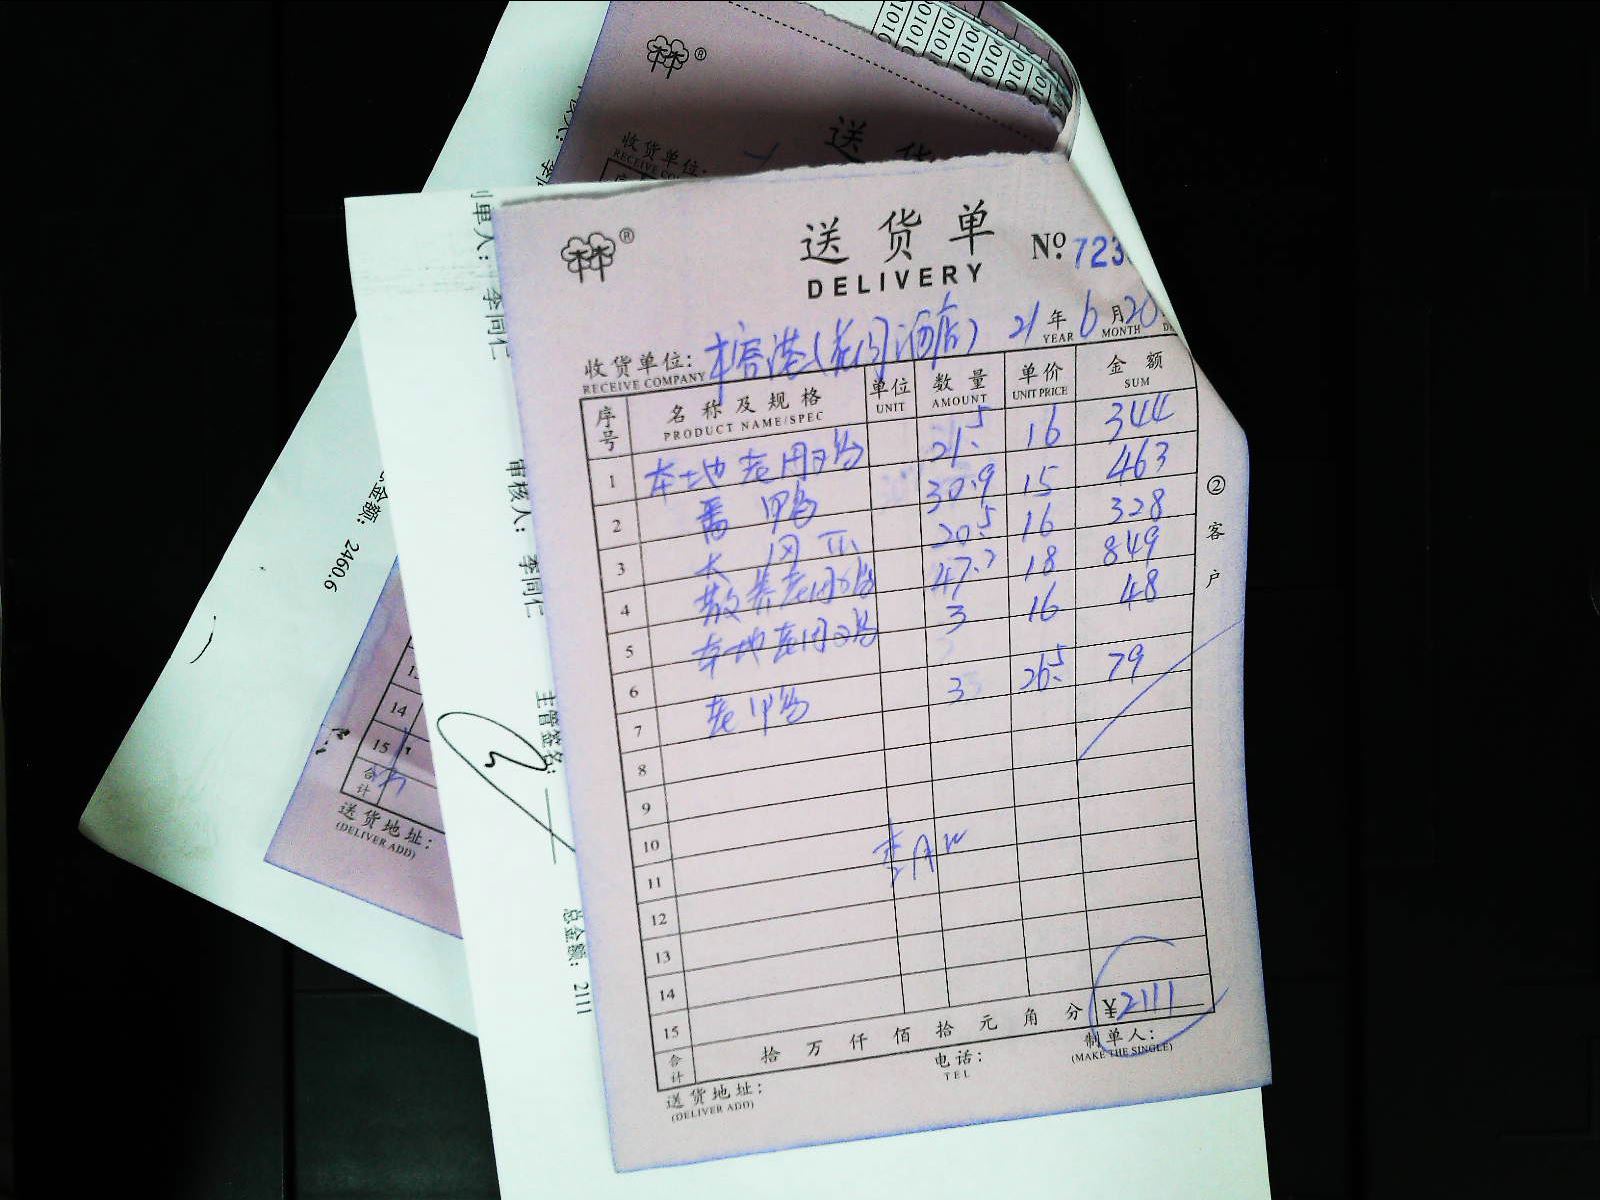 送货单
DELIVERY
№ 723
收货单位:
RECEIVE COMPANY
21 年 6 月 20
YEAR MONTH
序号 名称及规格 单位 数量 单价 金额
PRODUCT NAME/SPEC UNIT AMOUNT UNIT PRICE SUM
1 本地老 鸡 21.5 16 344
2 番鸭 30.9 15 463
3 20.5 16 328
4 散养老 鸡 47.2 18 849
5 本地老 鸡 3 16 48
6
7 老鸭 3 26.5 79
8
9
10
11
12
13
14
15
合计 拾 万 仟 佰 拾 元 角 分 ¥2111
送货地址:
(DELIVER ADD)
电话:
TEL
制单人:
(MAKE THE SINGLE)
② 客户
制单人: 李同仁
审核人: 李同仁
主管签名:
总金额: 2111
金额: 2460.6
送 货
收货单位:
RECEIVE CO
14
15
合计
送货地址:
(DELIVER ADD)